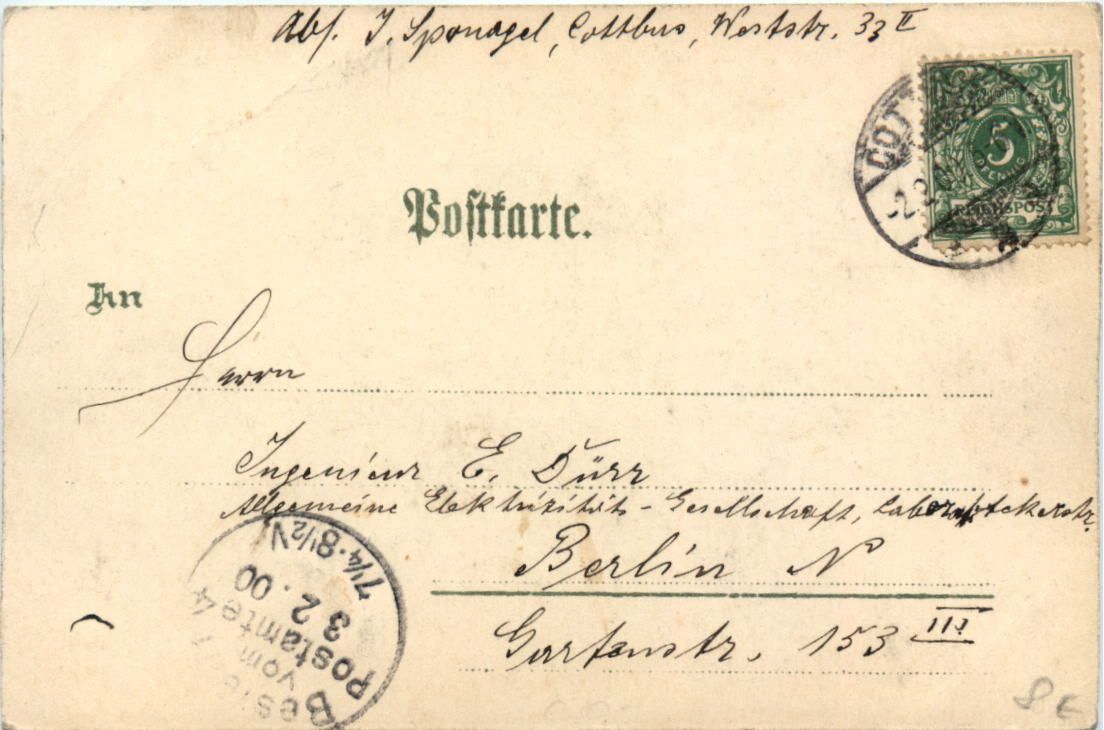 Abs. J. Sponagel, Cottbus, Weststr. 33 II
COTT
-2.2.
5
PFENNIG
REICHSPOST
Postkarte.
An
Herrn
Ingenieur E. Dürr
Allgemeine Elektrizitäts-Gesellschaft,
Berlin N
Gartenstr. 153 III
Bestellt
vom
Postamte 4
3 2.00
7¼-8½V.
8 €